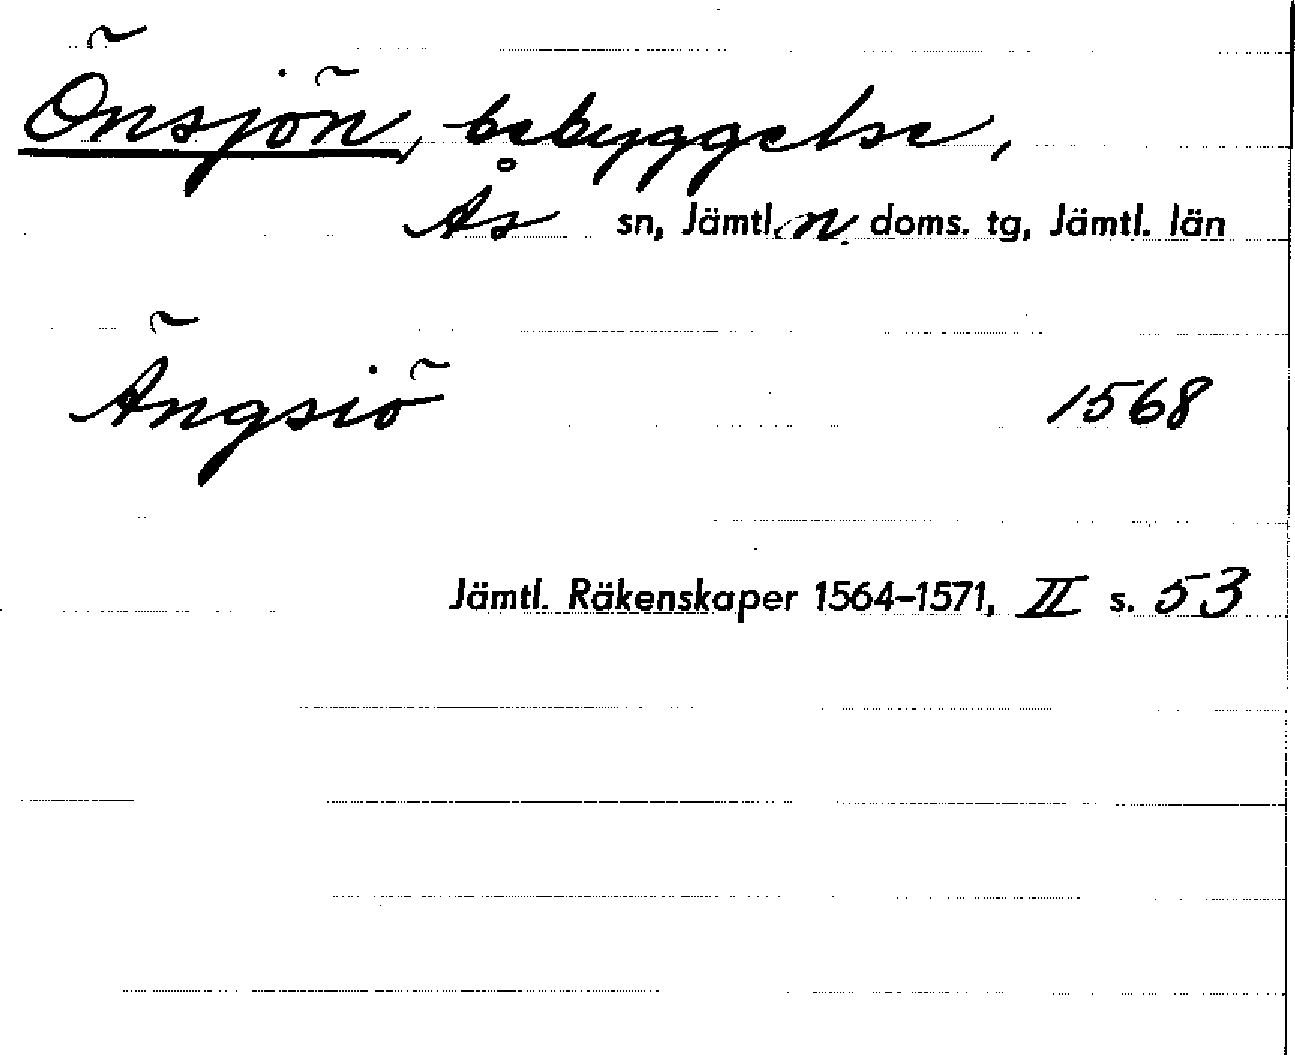 Önsjön, bebyggelse,
Ås sn, Jämtl. n doms. tg, Jämtl. län
Ängsiö 1568
Jämtl. Räkenskaper 1564–1571, II s. 53